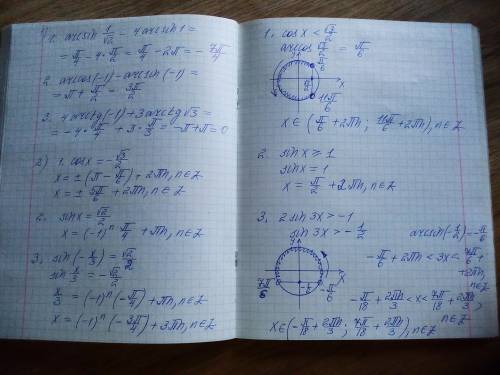 1) 1. arcsin 1/√2 - 4 arcsin 1 =
= π/4 - 4·π/2 = π/4 - 2π = - 7π/4
2. arccos(-1) - arcsin(-1) =
= π + π/2 = 3π/2
3. 4arctg(-1) + 3arctg√3 =
= -4·π/4 + 3·π/3 = -π+π=0
2) 1. cosx = -√3/2
x = ±(π - π/6) + 2πn, n∈Z
x = ± 5π/6 + 2πn, n∈Z
2. sinx = √2/2
x = (-1)ⁿ π/4 + πn, n∈Z
3. sin(-x/3) = √2/2
sin x/3 = -√2/2
x/3 = (-1)ⁿ(-π/4) + πn, n∈Z
x = (-1)ⁿ(-3π/4) + 3πn, n∈Z
1. cosx < √3/2
arccos √3/2 = π/6
π/6
x
11π/6
x∈(π/6 + 2πn; 11π/6 + 2πn), n∈Z
2. sinx ≥ 1
sinx = 1
x = π/2 + 2πn, n∈Z
3. 2 sin 3x > -1
sin 3x > - 1/2
arcsin(-1/2) = -π/6
-π/6 + 2πn < 3x < 7π/6 + 2πn,
n∈Z
7π/6
-π/6
-π/18 + 2πn/3 < x < 7π/18 + 2πn/3,
n∈Z
x∈(-π/18 + 2πn/3; 7π/18 + 2πn/3), n∈Z